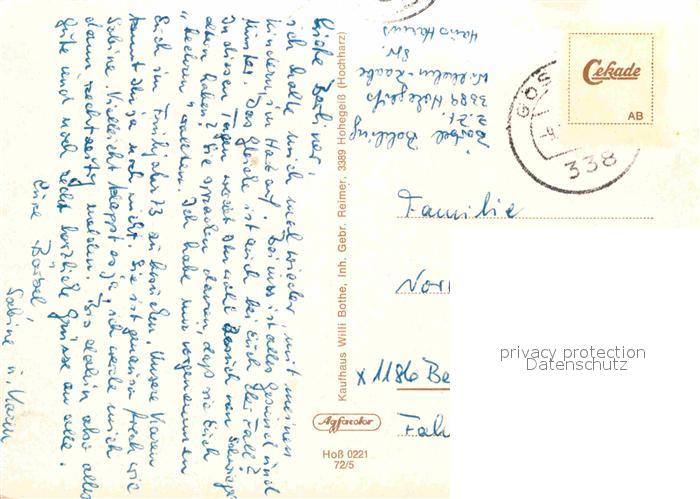 Liebe Berliner,
ich halte mich mal wieder, mit meinen
Kindern, im Harz auf. Bei uns ist alles gesund und
munter. Das gleiche ist auch bei Euch der Fall?
In diesen Tagen werdet Ihr wohl Besuch von Schwieger
eltern haben? Sie sprachen davon, daß sie Euch
"beehren" wollten. Ich habe mir vorgenommen
Euch im Frühjahr 73 zu besuchen. Unsere Karen
kennt Ihr ja noch nicht. Sie ist genauso frech wie
Sabine. Vielleicht klappt es ja, ich werde mich
dann rechtzeitig melden. Bis dahin also alles
Gute und noch recht herzliche Grüsse an alle.
Eure Bärbel
Sabine u. Karen
Kaufhaus Willi Bothe, Inh. Gebr. Reimer, 3389 Hohegeiß (Hochharz)
Agfacolor
Hoß 0221
72/5
Bärbel
z. Zt.
3389 Hohegeiß
Wilhelm-Raabe
Str.
Cekade
AB
GOS
338
Familie
x 1186 Be
privacy protection
Datenschutz